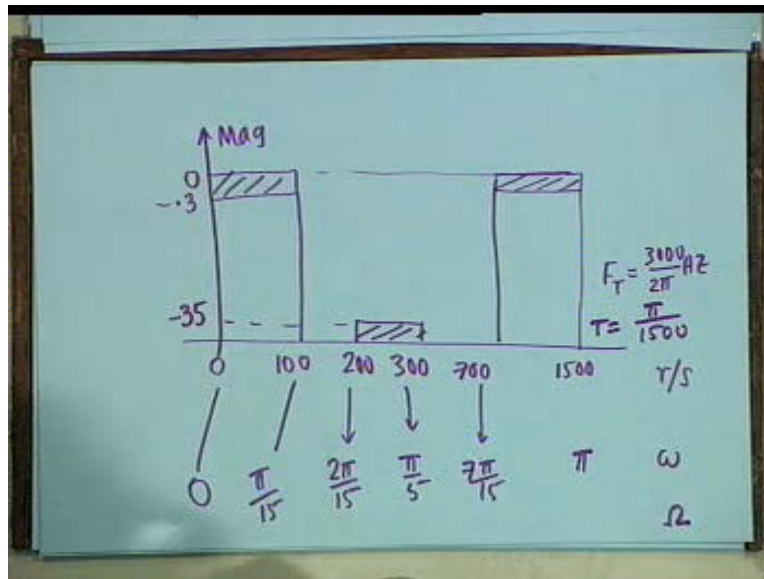 Mag
0
-.3
-35
F_T = 3000/2π HZ
T = π/1500
0 100 200 300 700 1500 r/s
0 π/15 2π/15 π/5 7π/15 π ω
Ω